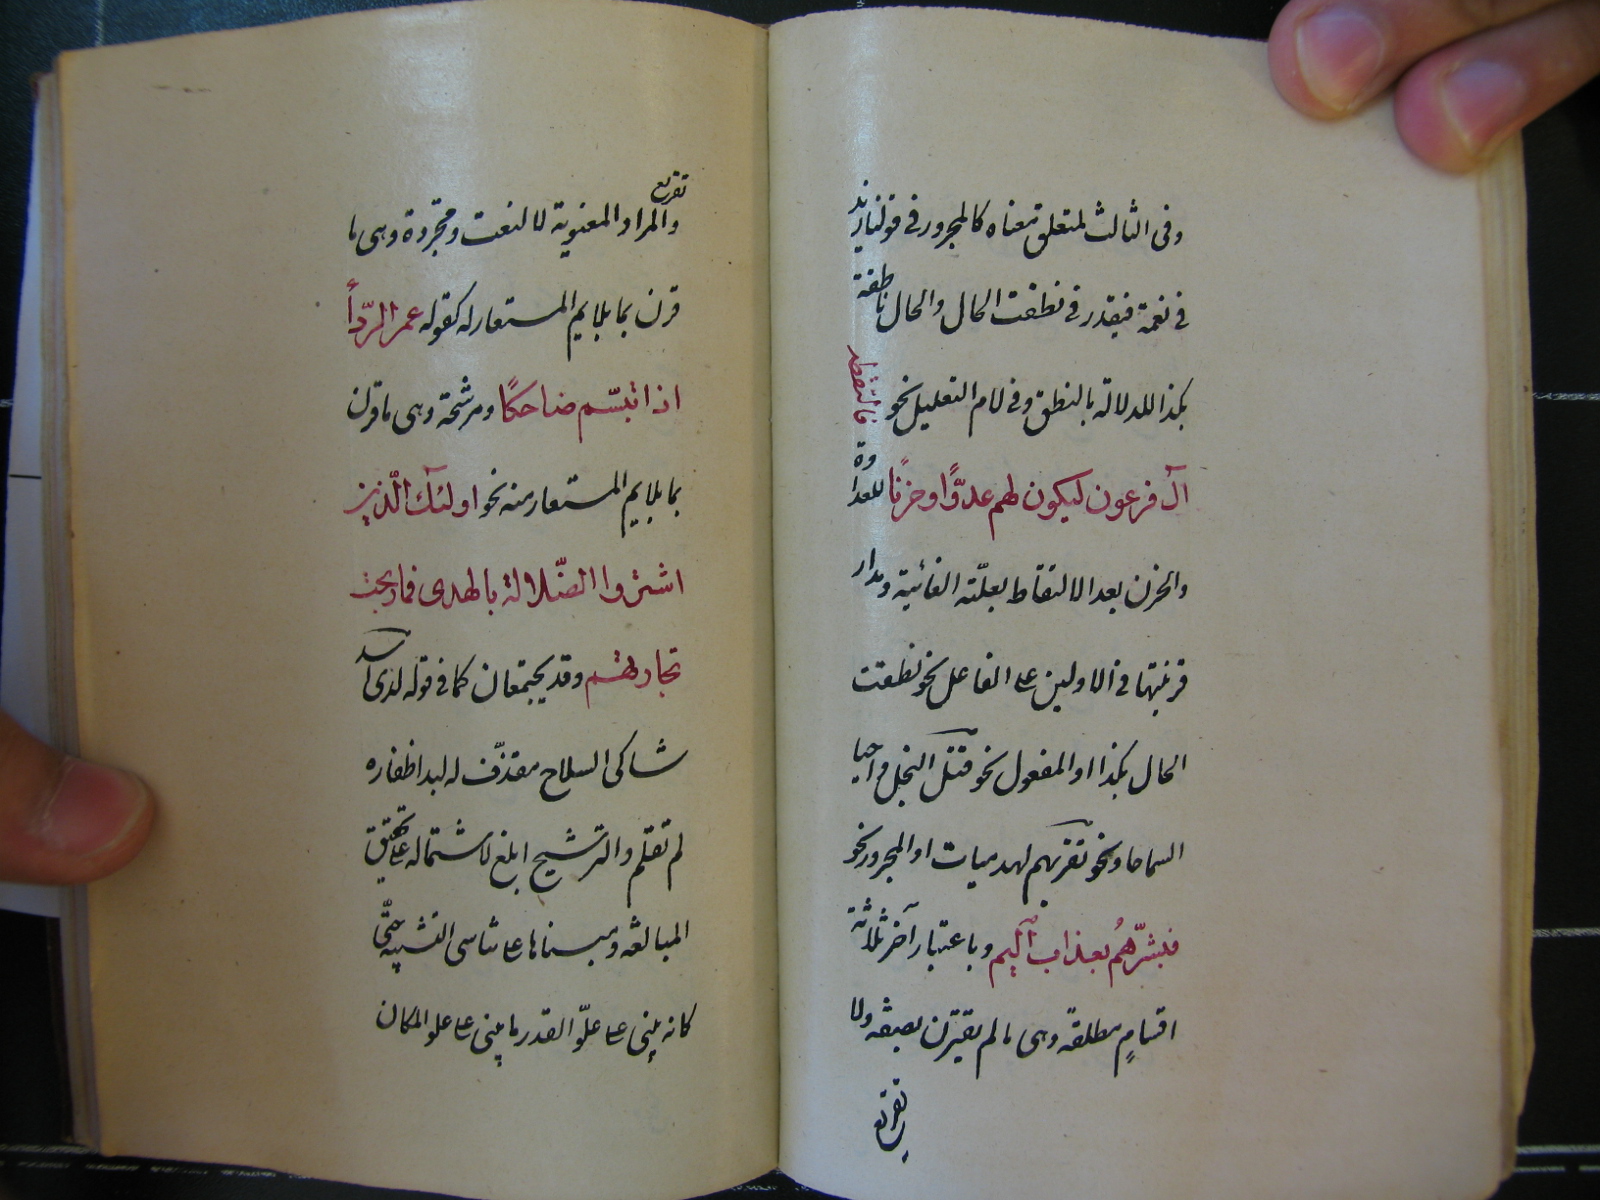 وفى الثالث لمتعلق معناه كالمجرور فى قولنا زيد
فى نعمة فيقدر فى نطقت الحال والحال ناطقة
بكذا للدلالة بالنطق وفى لام التعليل نحو فالتقطه
آل فرعون ليكون لهم عدوّا وحزنًا للعداوة
والحزن بعد الالتقاط بعلّته الغائية ومدار
قرينتها فى الاولين على الفاعل نحو نطقت
الحال بكذا او المفعول نحو قتل البخل واحيا
السماحا ونحو نقريهم لهذميات او المجرور نحو
فبشّرهُم بعذاب اليم وباعتبار آخر ثلاثة
اقسامٍ مطلقة وهى ما لم يقترن بصفة ولا
تفريع
تفريع
والمراد المعنوية لا النعت ومجردة وهى ما
قرن بما يلايم المستعار له كقوله غمر الرّدأ
اذا تبسّم ضاحكًا ومرشحة وهى ما قرن
بما يلايم المستعار منه نحو اولئك الّذين
اشتروا الضّلالة بالهدى فما ربحت
تجارتهم وقد يجتمعان كما فى قوله لدى اسد
شاكى السلاح مقذّف له لبد اظفاره
لم تقلم والترشيح ابلغ لاشتماله على تحقيق
المبالغة ومبناها على تناسى التشبيه حتّى
كانه يبنى على علوّ القدر ما يبنى على علو المكان